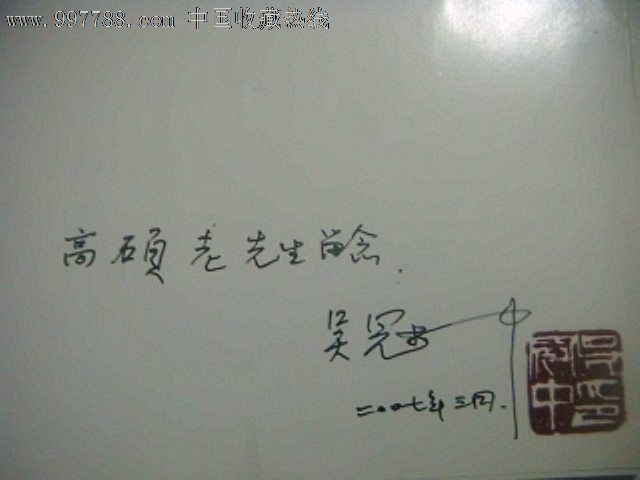 www.997788.com 中国收藏热线
高硕老先生留念.
吴冠中
二〇〇七年三月.